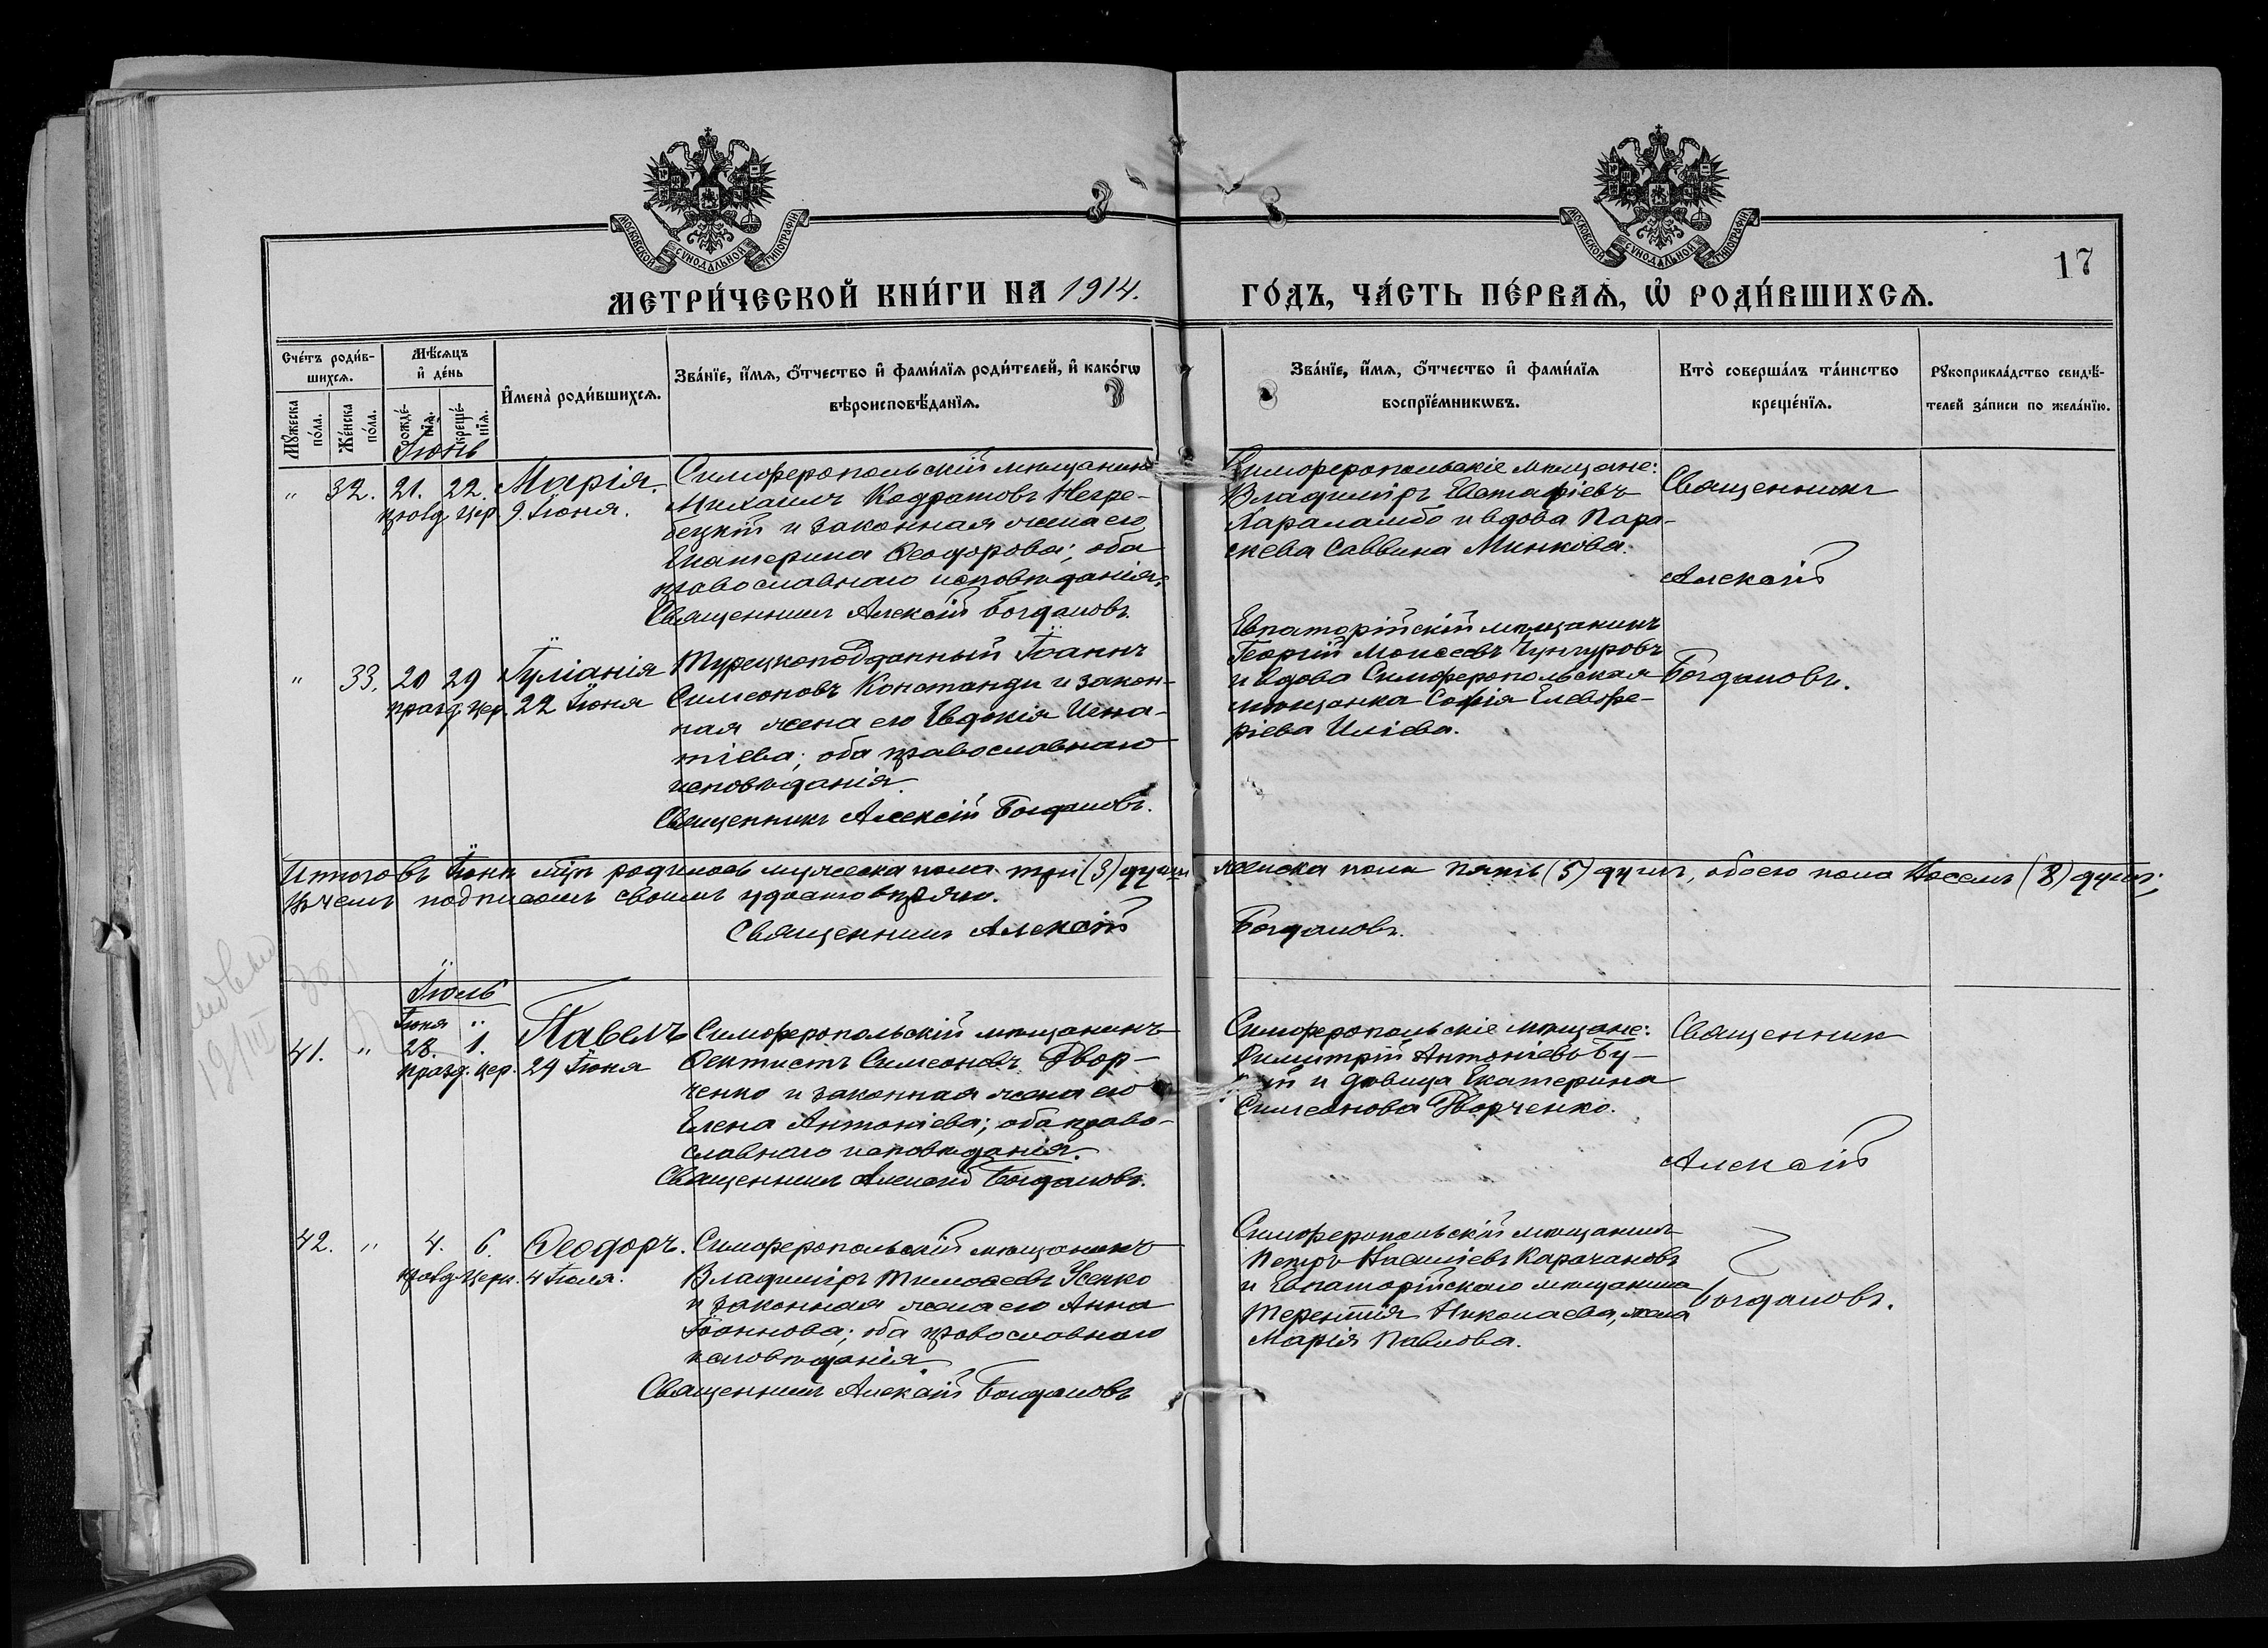 МОСКОВСКОЙ СѴНОДАЛЬНОЙ ТИПОГРАФІИ
МОСКОВСКОЙ СѴНОДАЛЬНОЙ ТИПОГРАФІИ
17
МЕТРИ́ЧЕСКОЙ КНИ́ГИ НА 1914. ГО́ДЪ, ЧА́СТЬ ПЕ́РВАѦ, Ѡ҆ РОДИ́ВШИХСѦ.
Сче́тъ роди́в-
шихсѧ.
Мꙋ́жеска по́ла.
Же́нска по́ла.
Мѣ́сѧцъ
и҆ де́нь
рожде́-
нїѧ.
креще́-
нїѧ.
И҆мена̀ роди́вшихсѧ.
Зва́нїе, и҆́мѧ, ѻ҆́тчество и҆ фами́лїѧ роди́телей, и҆ како́гѡ
вѣроисповѣ́данїѧ.
Зва́нїе, и҆́мѧ, ѻ҆́тчество и҆ фами́лїѧ
воспрїе́мникѡвъ.
Кто̀ соверша́лъ та́инство
креще́нїѧ.
Рꙋкоприкла́дство свидѣ́-
телей за́писи по жела́нїю.
Іюнь
" 32. 21. 22. Марія.
правд. цер. 9. Іюня.
Симферопольскій мѣщанинъ
Михаилъ Кодратовъ Негре-
бецкій и законная жена его
Екатерина Ѳеодорова; оба
православнаго исповѣданія.
Священникъ Алексій Богдановъ.
Симферопольскіе мѣщане:
Владиміръ Евстафіевъ
Харалambo и вдова Пара-
скева Саввина Минкова.
Священникъ
Алексій
Богдановъ.
" 33. 20 29 Іуліанія
празд. цер. 22 Іюня
Турецкоподданный Іоаннъ
Симеоновъ Константи и закон-
ная жена его Евдокія Игна-
тіева; оба православнаго
исповѣданія.
Священникъ Алексій Богдановъ.
Евпаторійскій мѣщанинъ
Георгій Моисеевъ Чунгуровъ
и вдова Симферопольская
мѣщанка Софія Елевфе-
ріева Иліева.
Итого въ Іюнѣ мцѣ родилось мужеска пола три (3) души женска пола пять (5) душъ, обоего пола восемь (8) душъ;
въ чемъ подписомъ своимъ удостовѣряю.
Священникъ Алексій Богдановъ.
Іюль
41. " Іюня 28. " 1. Павелъ
празд. цер. 29 Іюня
Симферопольскій мѣщанинъ
Ѳектистъ Симеоновъ Двор-
ченко и законная жена его
Елена Антоніева; оба право-
славнаго исповѣданія.
Священникъ Алексій Богдановъ.
Симферопольскіе мѣщане:
Димитрій Антоніевъ Бу-
и дѣвица Екатерина
Симеонова Дворченко.
Священник
Алексій
Богдановъ.
42. " 4. 6. Ѳеодоръ.
правд. церк. 4 Іюля.
Симферопольскій мѣщанинъ
Владиміръ Тимоѳеевъ Усенко
и законная жена его Анна
Іоаннова; оба православнаго
исповѣданія.
Священникъ Алексій Богдановъ
Симферопольскій мѣщанинъ
Петръ Карачановъ
и Евпаторійскаго мѣщанина
Терентія Николаева, жена
Марія Павлова.